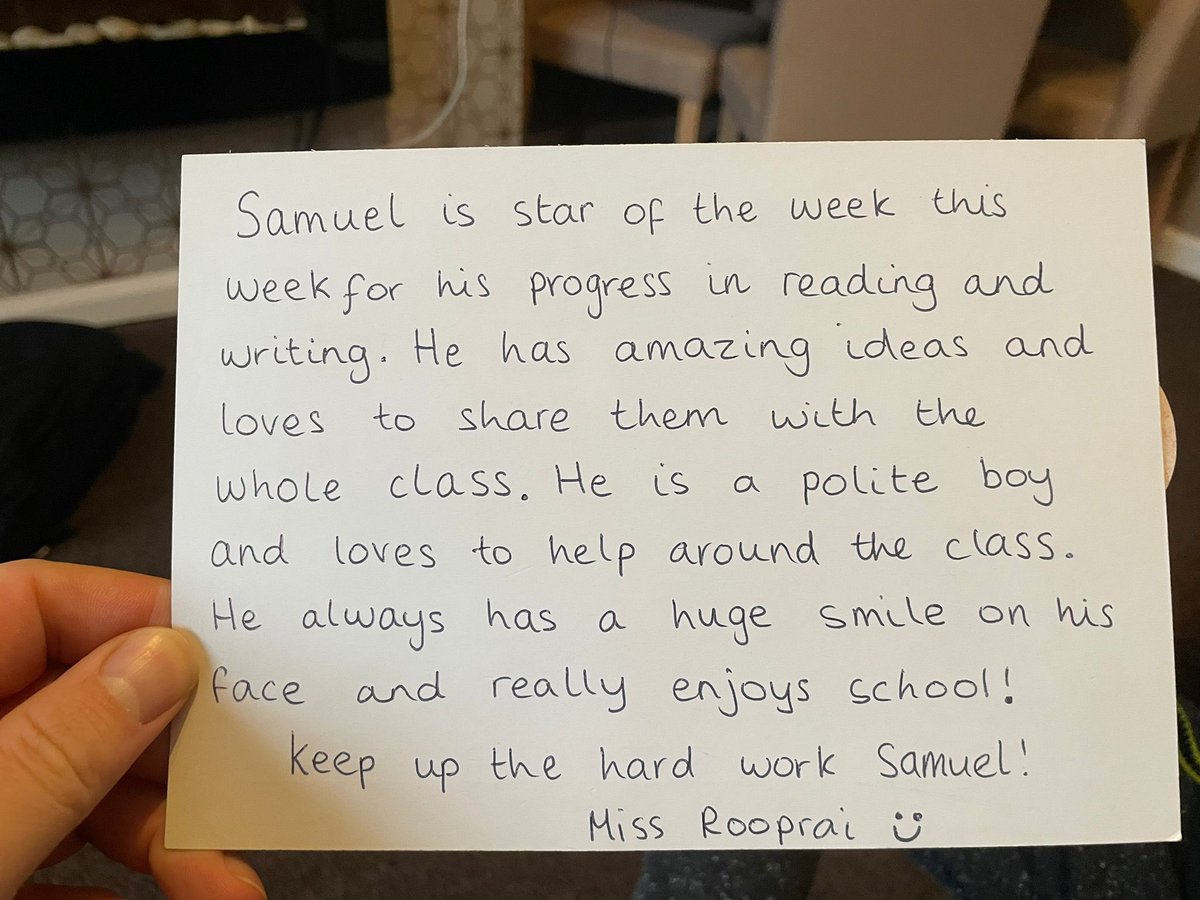 Samuel is star of the week this
week for his progress in reading and
writing. He has amazing ideas and
loves to share them with the
whole class. He is a polite boy
and loves to help around the class.
He always has a huge smile on his
face and really enjoys school!
Keep up the hard work Samuel!
Miss Rooprai